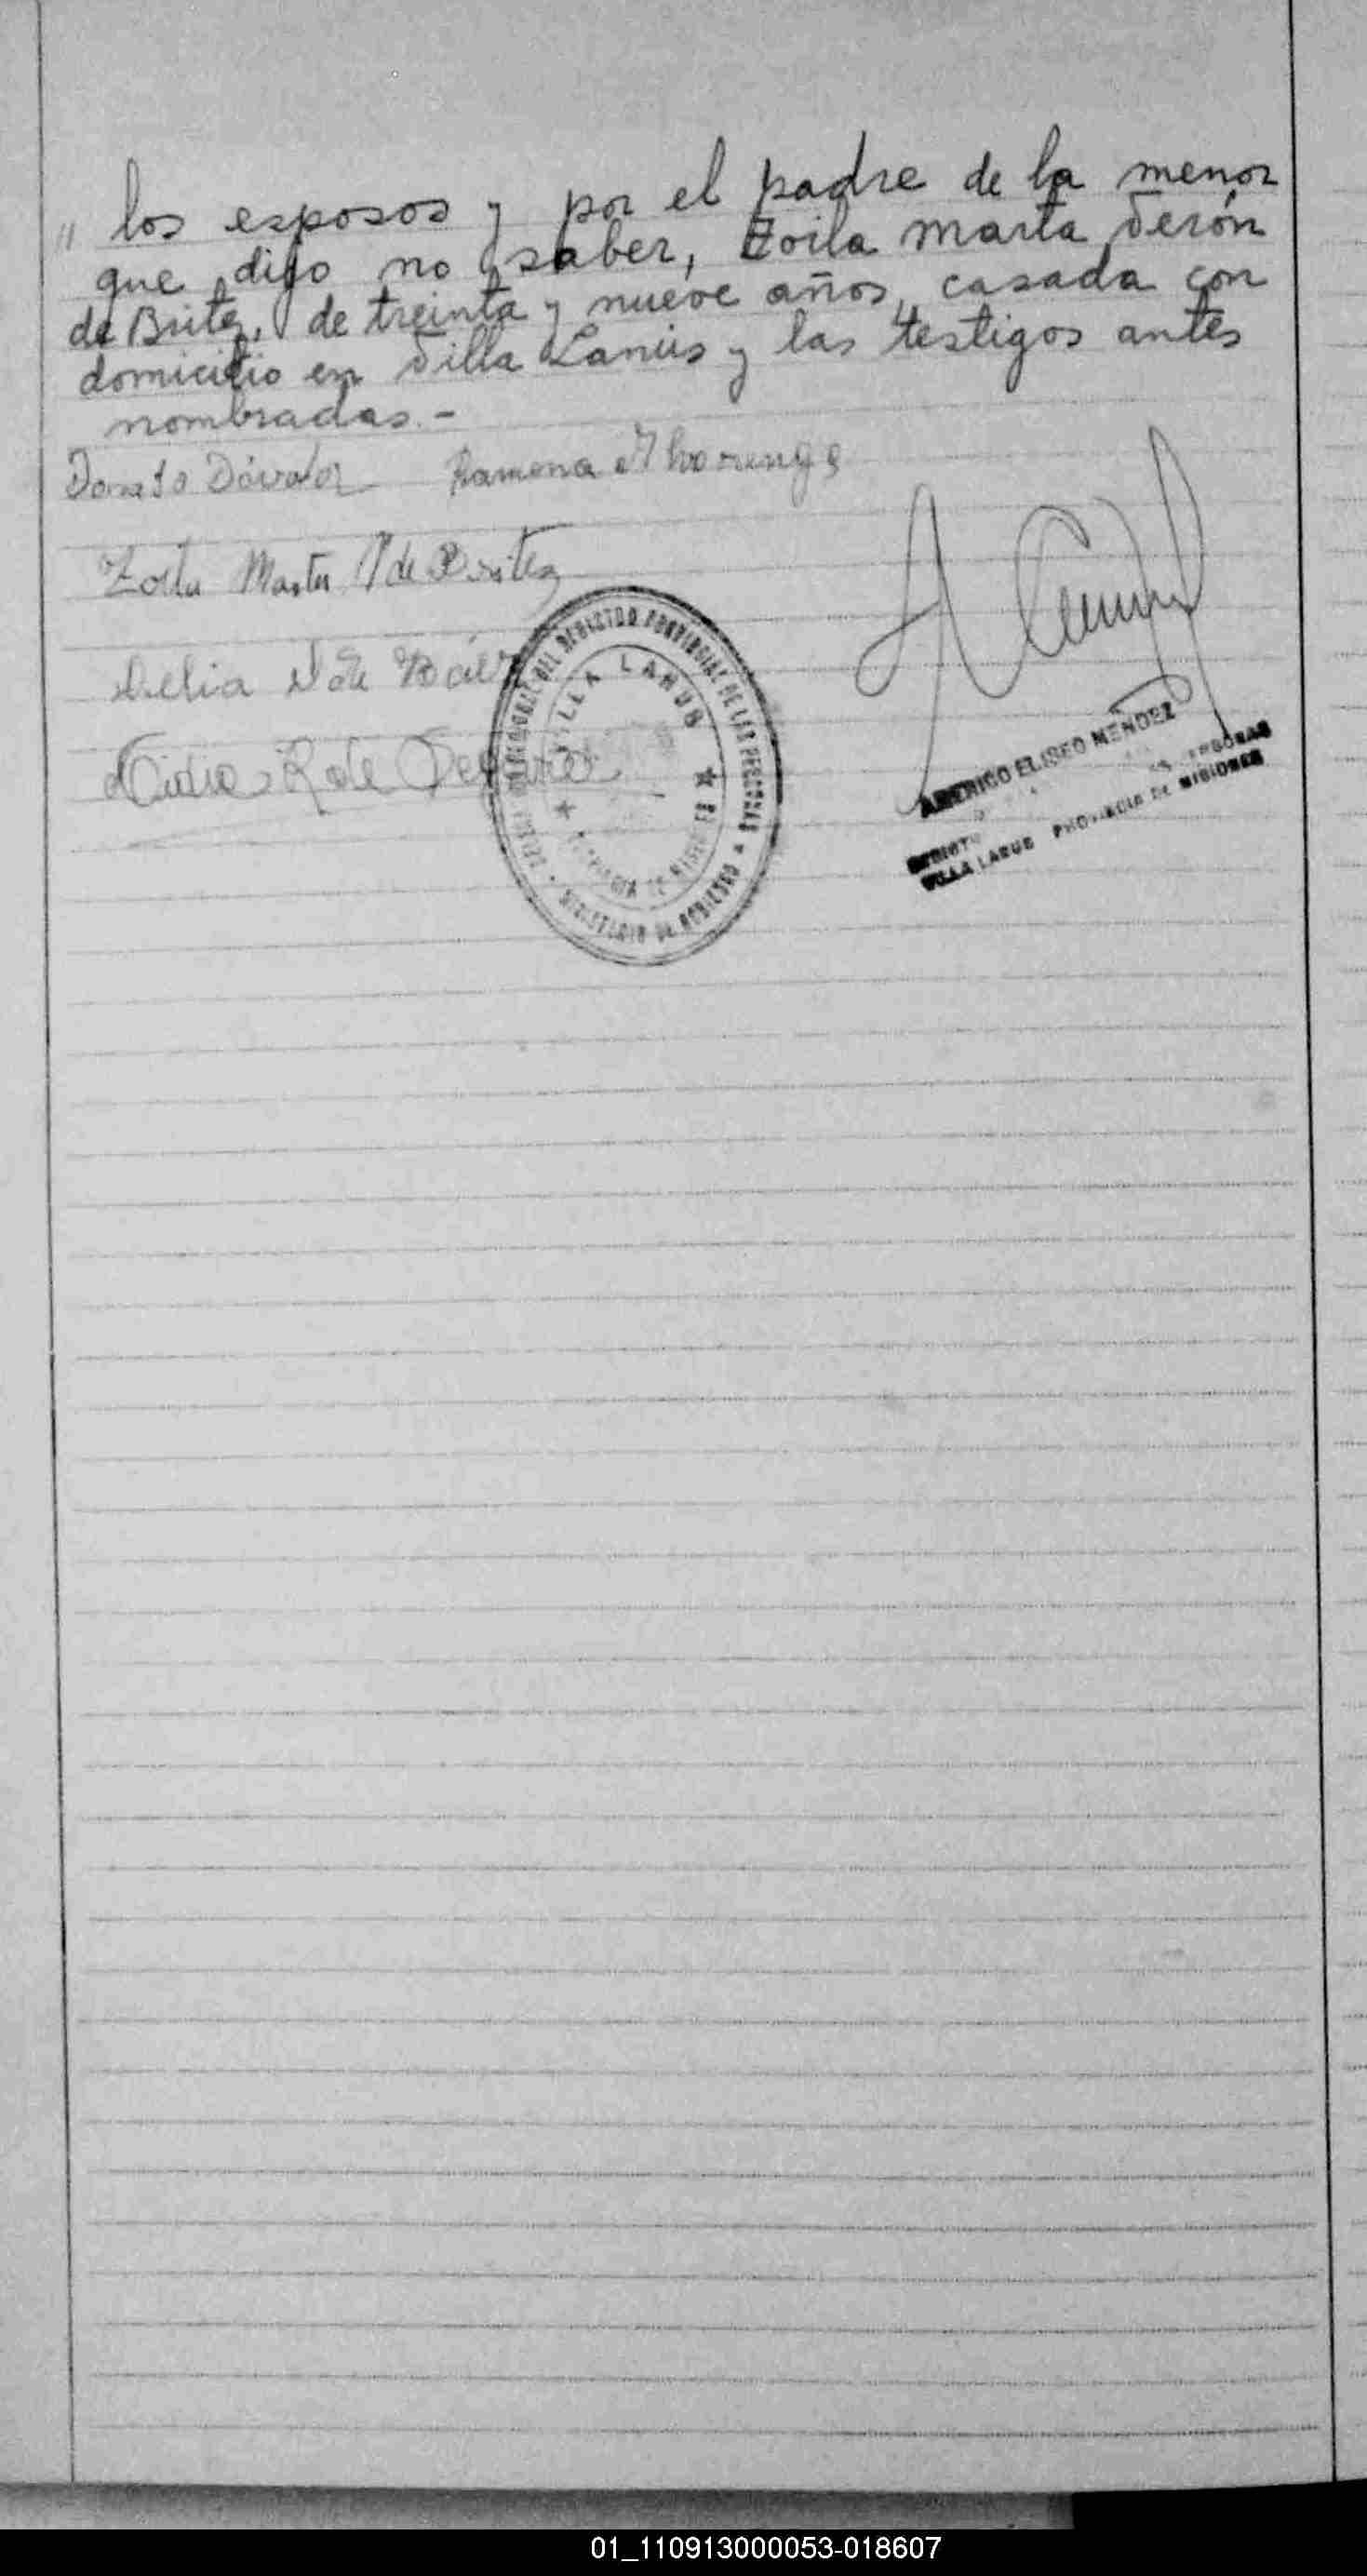 " los esposos y por el padre de la menor
que dijo no saber, Zoila Marta Verón
de Britez, de treinta y nueve años, casada con
domicilio en Villa Lanús y las testigos antes
nombradas.-
Donato Dávalos Ramona
Zoila Marta V de Britez
Delia de
R de
DEL REGISTRO PROVINCIAL DE LAS PERSONAS
VILLA LANUS
MINISTERIO DE GOBIERNO
PROVINCIA DE MISIONES
AMERICO ELISEO MENDEZ
PERSONAS
VILLA LANUS PROVINCIA DE MISIONES
01_110913000053-018607